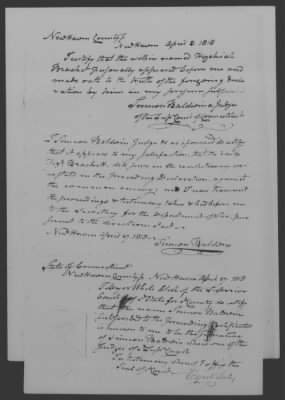 New Haven County ss
New Haven April 8. 1818
I certify that the within named Hezekiah
Bracket personally appeared before me and
made oath to the truth of the foregoing decla
ration by him in my presence
Simeon Baldwin a Judge
of the Supr Court of Connecticut
I Simeon Baldwin Judge &c as aforesaid do certify
that it appears to my satisfaction, that the said
Brackett did serve in the revolutionary war
as stated in the preceding Declaration, against
the common enemy; and I now transmit
the proceedings & testimony taken & had before me
to the Secretary for the department of War, pur
suant to the directions of
New Haven April 1818
Simeon Baldwin
State of Connecticut
New Haven County ss New Haven April 1818
I White Clerk of the Superior
Court of State for County do certify
that the name Simeon Baldwin
subscribed to the preceding Certificates
is known to me to be the signature
of Simeon Baldwin who is one of the
Judges of Court
In testimony whereof I affix the
Seal of